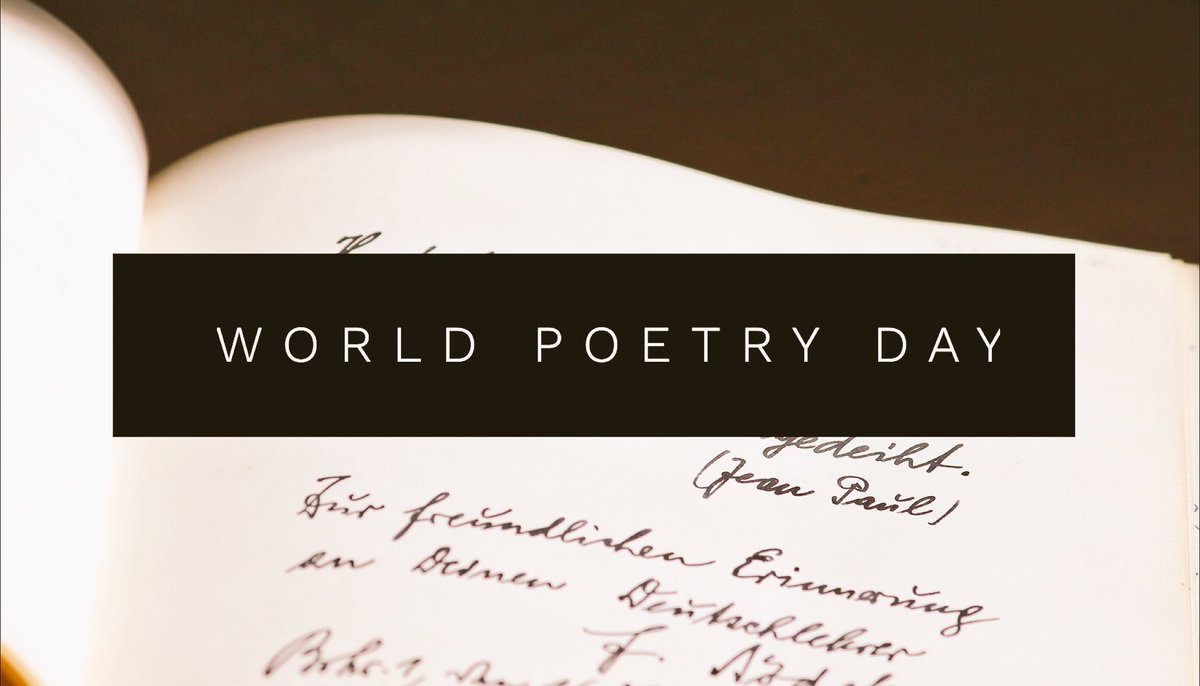 WORLD POETRY DAY
gedeiht.
(Jean Paul)
Zur freundlichen Erinnerung
an Deinen Deutschlehrer
F.